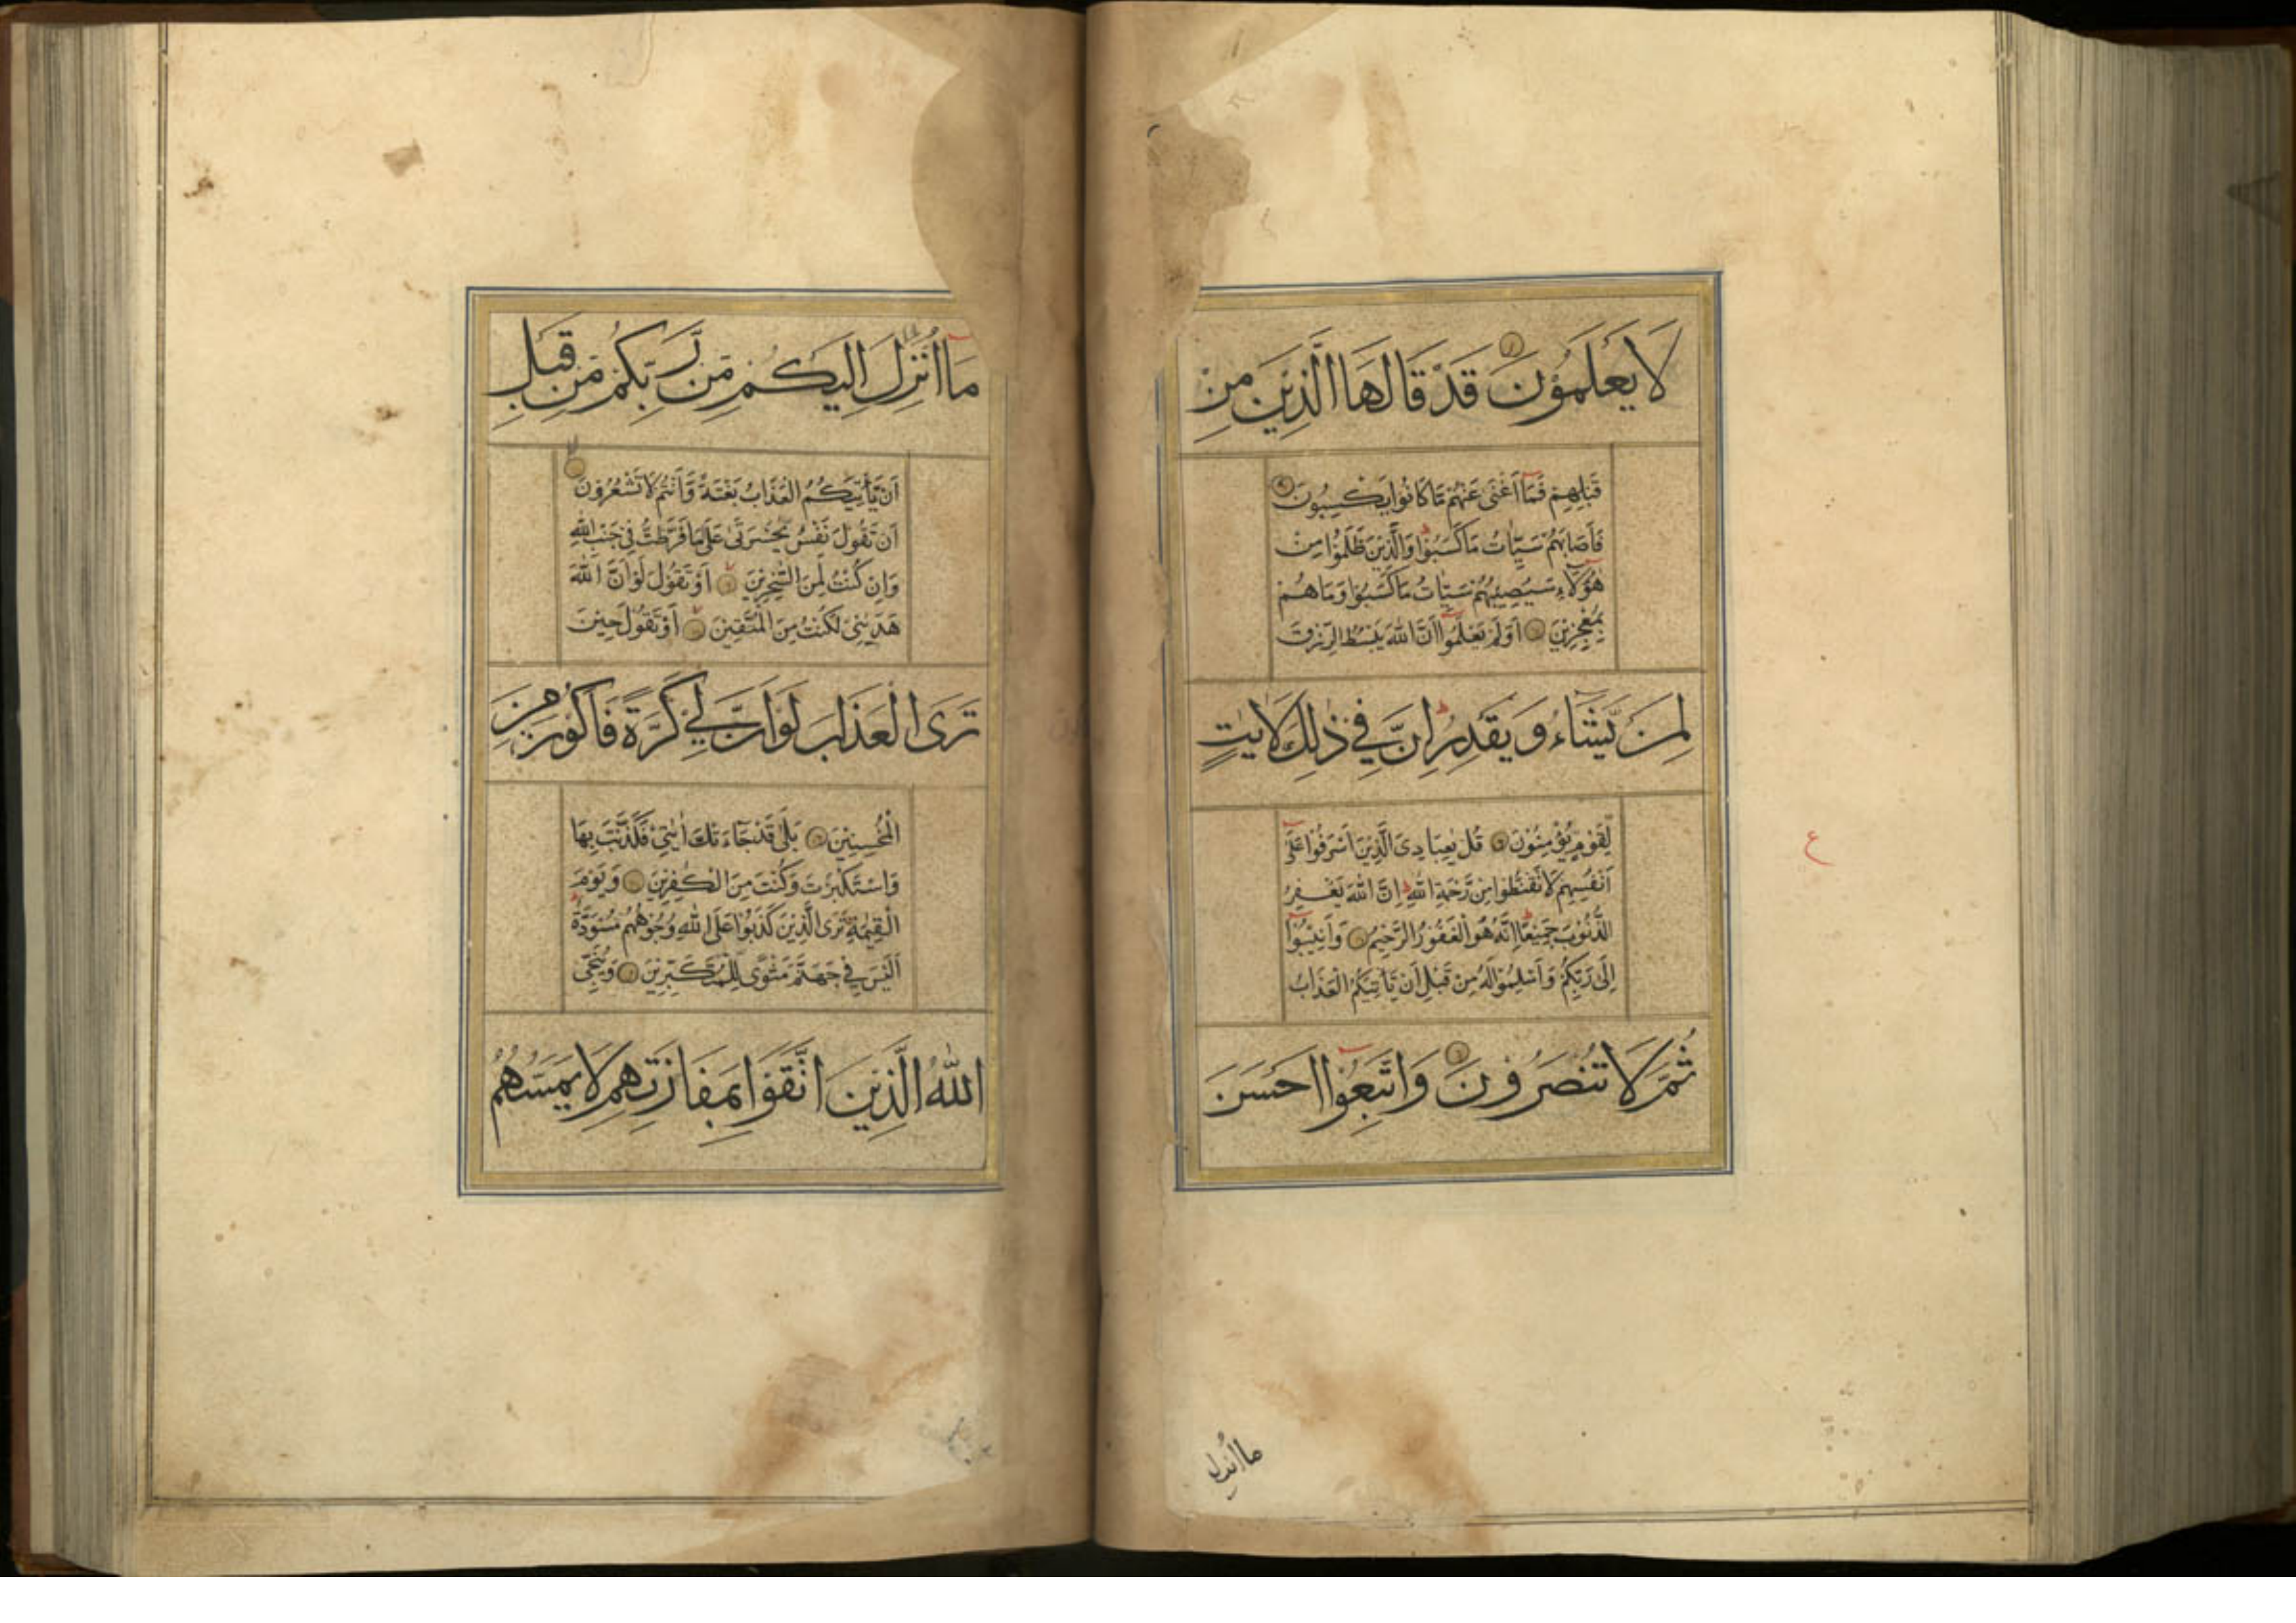 لَا يَعْلَمُوْنَ قَدْ قَالَهَا الَّذِيْنَ مِنْ
قَبْلِهِمْ فَمَآ اَغْنٰى عَنْهُمْ مَّا كَانُوْا يَكْسِبُوْنَ
فَاَصَابَهُمْ سَيِّاٰتُ مَا كَسَبُوْا وَالَّذِيْنَ ظَلَمُوْا مِنْ
هٰٓؤُلَآءِ سَيُصِيْبُهُمْ سَيِّاٰتُ مَا كَسَبُوْا وَمَا هُمْ
بِمُعْجِزِيْنَ اَوَلَمْ يَعْلَمُوْٓا اَنَّ اللّٰهَ يَبْسُطُ الرِّزْقَ
لِمَنْ يَّشَآءُ وَيَقْدِرُ اِنَّ فِيْ ذٰلِكَ لَاٰيٰتٍ
لِّقَوْمٍ يُّؤْمِنُوْنَ قُلْ يٰعِبَادِيَ الَّذِيْنَ اَسْرَفُوْا عَلٰٓى
اَنْفُسِهِمْ لَا تَقْنَطُوْا مِنْ رَّحْمَةِ اللّٰهِ اِنَّ اللّٰهَ يَغْفِرُ
الذُّنُوْبَ جَمِيْعًا اِنَّهٗ هُوَ الْغَفُوْرُ الرَّحِيْمُ وَاَنِيْبُوْٓا
اِلٰى رَبِّكُمْ وَاَسْلِمُوْا لَهٗ مِنْ قَبْلِ اَنْ يَّاْتِيَكُمُ الْعَذَابُ
ثُمَّ لَا تُنْصَرُوْنَ وَاتَّبِعُوْٓا اَحْسَنَ
ع
ما انزل
مَآ اُنْزِلَ اِلَيْكُمْ مِّنْ رَّبِّكُمْ مِّنْ قَبْلِ
اَنْ يَّاْتِيَكُمُ الْعَذَابُ بَغْتَةً وَّاَنْتُمْ لَا تَشْعُرُوْنَ
اَنْ تَقُوْلَ نَفْسٌ يّٰحَسْرَتٰى عَلٰى مَا فَرَّطْتُّ فِيْ جَنْبِ اللّٰهِ
وَاِنْ كُنْتُ لَمِنَ السّٰخِرِيْنَ اَوْ تَقُوْلَ لَوْ اَنَّ اللّٰهَ
هَدٰىنِيْ لَكُنْتُ مِنَ الْمُتَّقِيْنَ اَوْ تَقُوْلَ حِيْنَ
تَرَى الْعَذَابَ لَوْ اَنَّ لِيْ كَرَّةً فَاَكُوْنَ مِنَ
الْمُحْسِنِيْنَ بَلٰى قَدْ جَآءَتْكَ اٰيٰتِيْ فَكَذَّبْتَ بِهَا
وَاسْتَكْبَرْتَ وَكُنْتَ مِنَ الْكٰفِرِيْنَ وَيَوْمَ
الْقِيٰمَةِ تَرَى الَّذِيْنَ كَذَبُوْا عَلَى اللّٰهِ وُجُوْهُهُمْ مُّسْوَدَّةٌ
اَلَيْسَ فِيْ جَهَنَّمَ مَثْوًى لِّلْمُتَكَبِّرِيْنَ وَيُنَجِّى
اللّٰهُ الَّذِيْنَ اتَّقَوْا بِمَفَازَتِهِمْ لَا يَمَسُّهُمُ